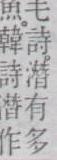 毛詩。潛有多
魚。韓詩潛作